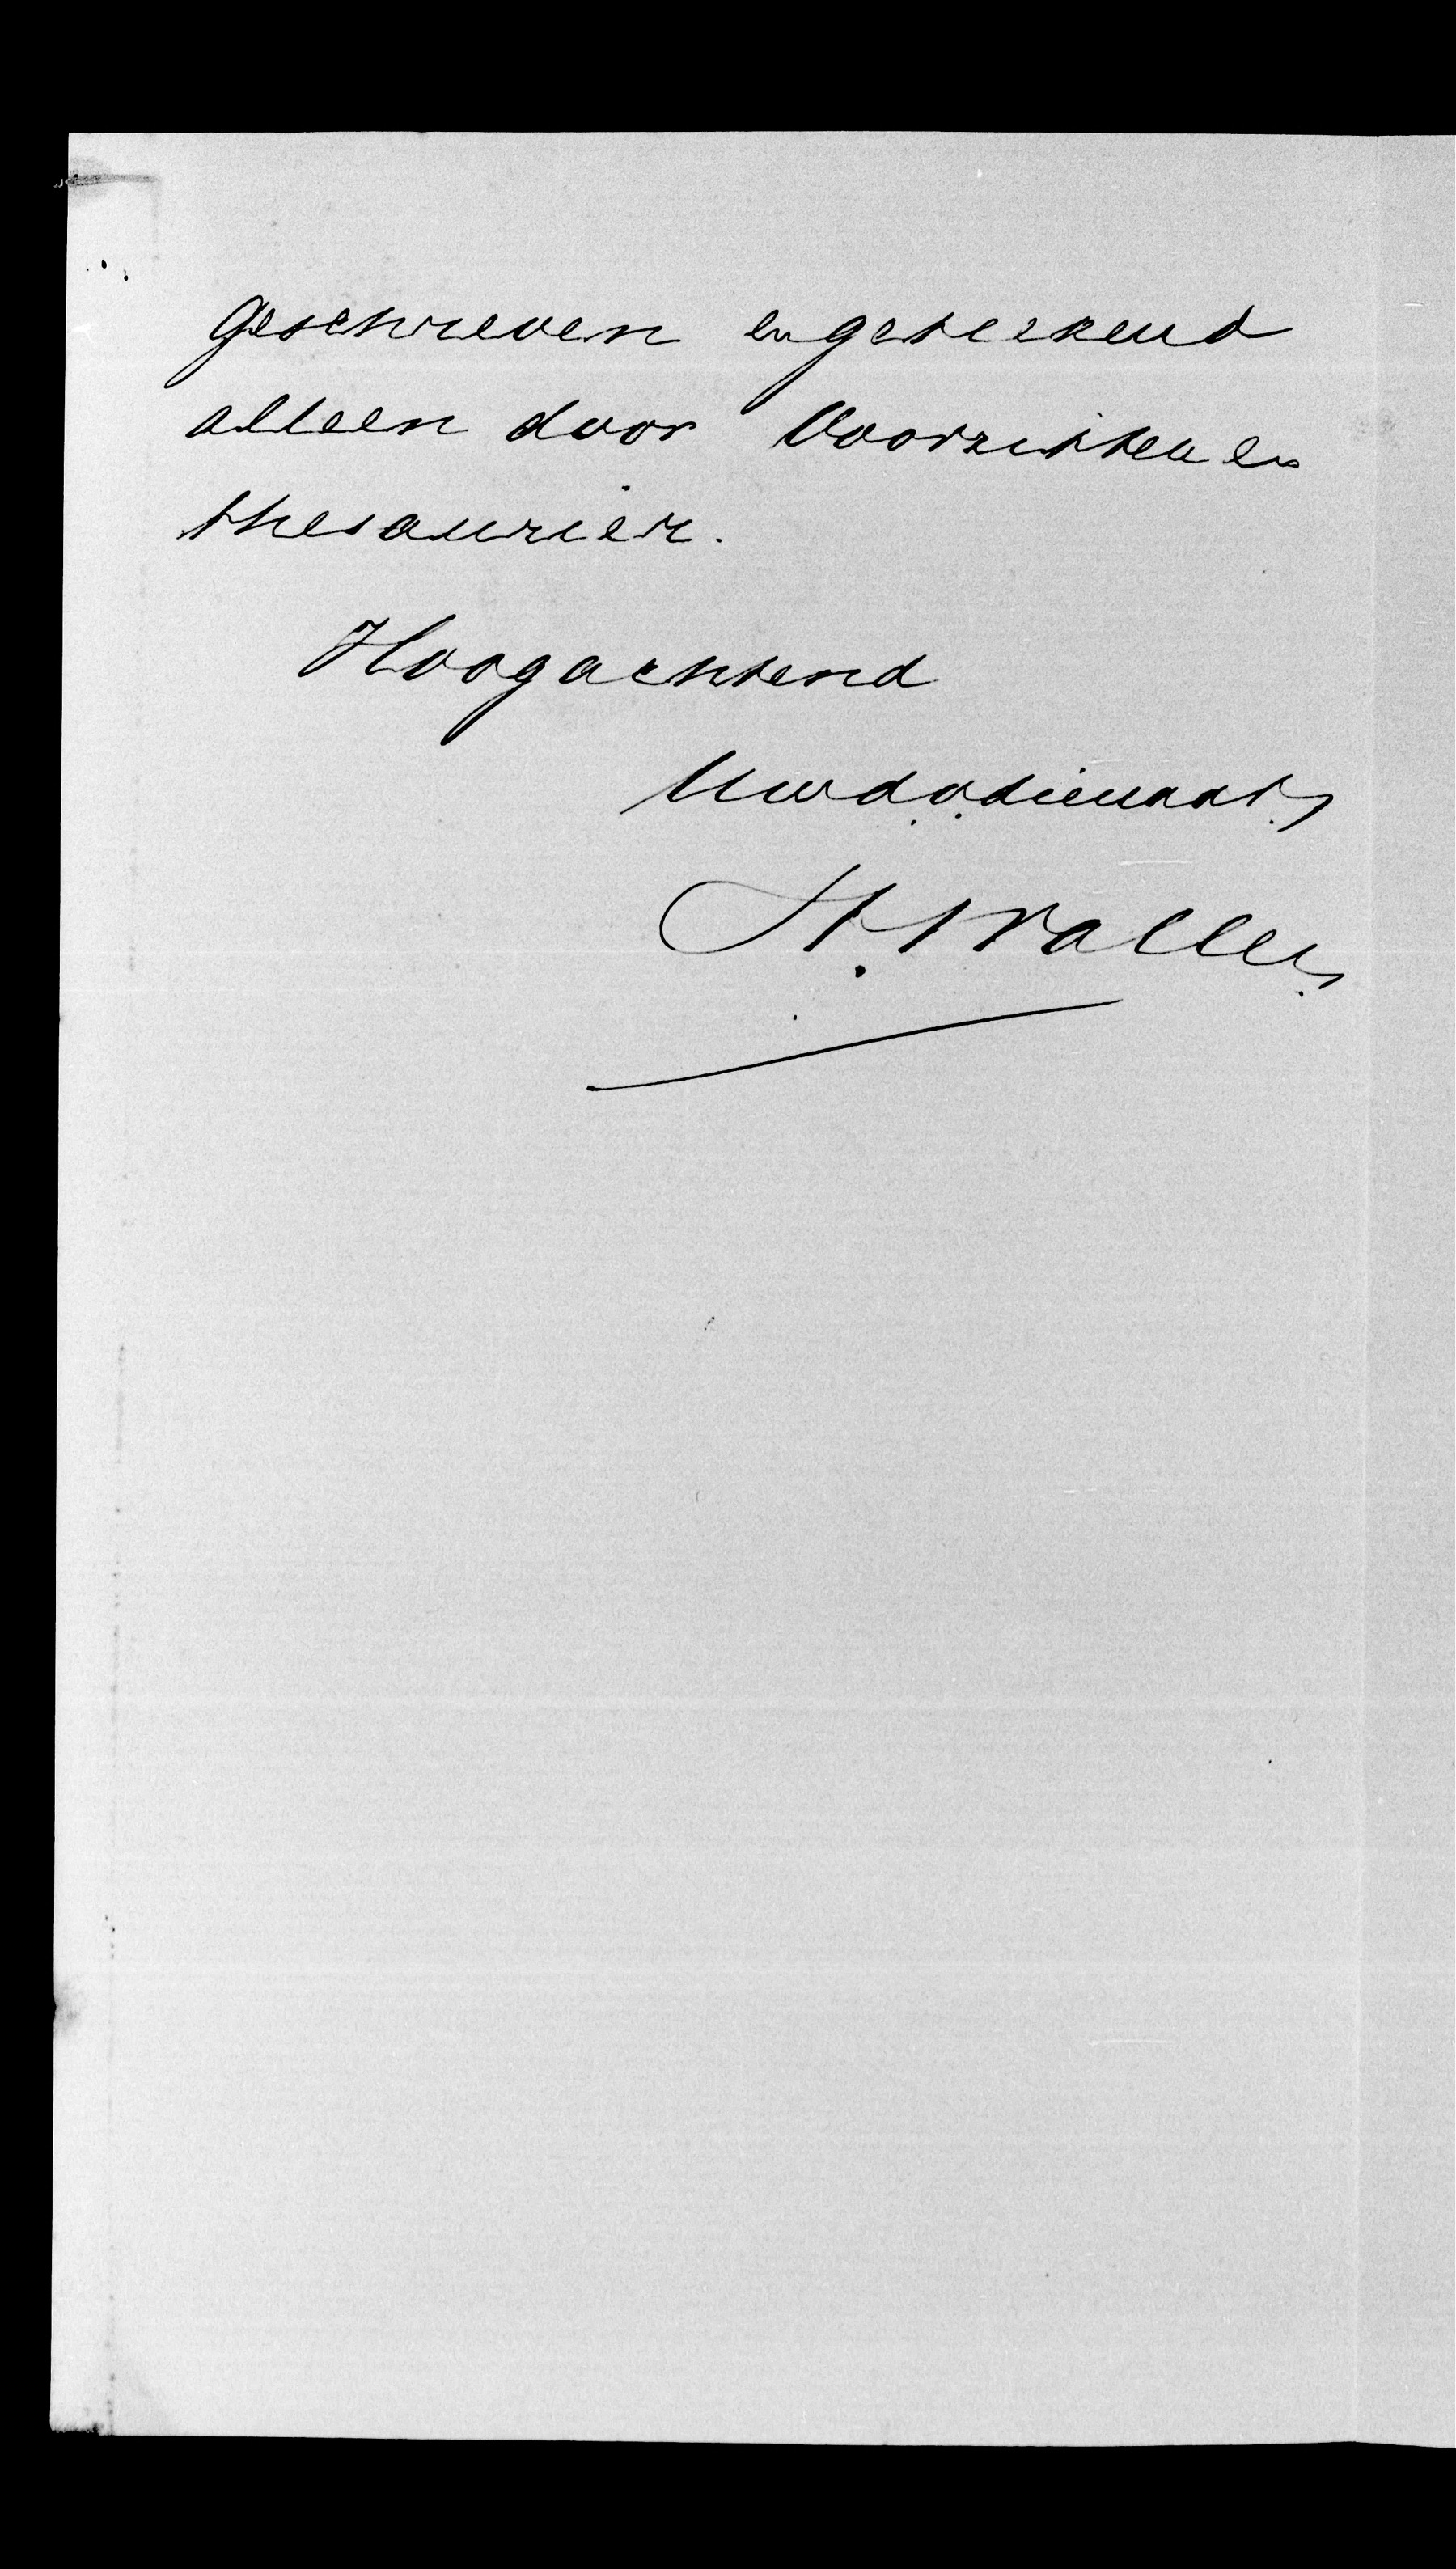 geschreven en geteekend
alleen door Voorzitter en
thesaurier.
Hoogachtend
Uw d. v. dienaar,
H. Waller